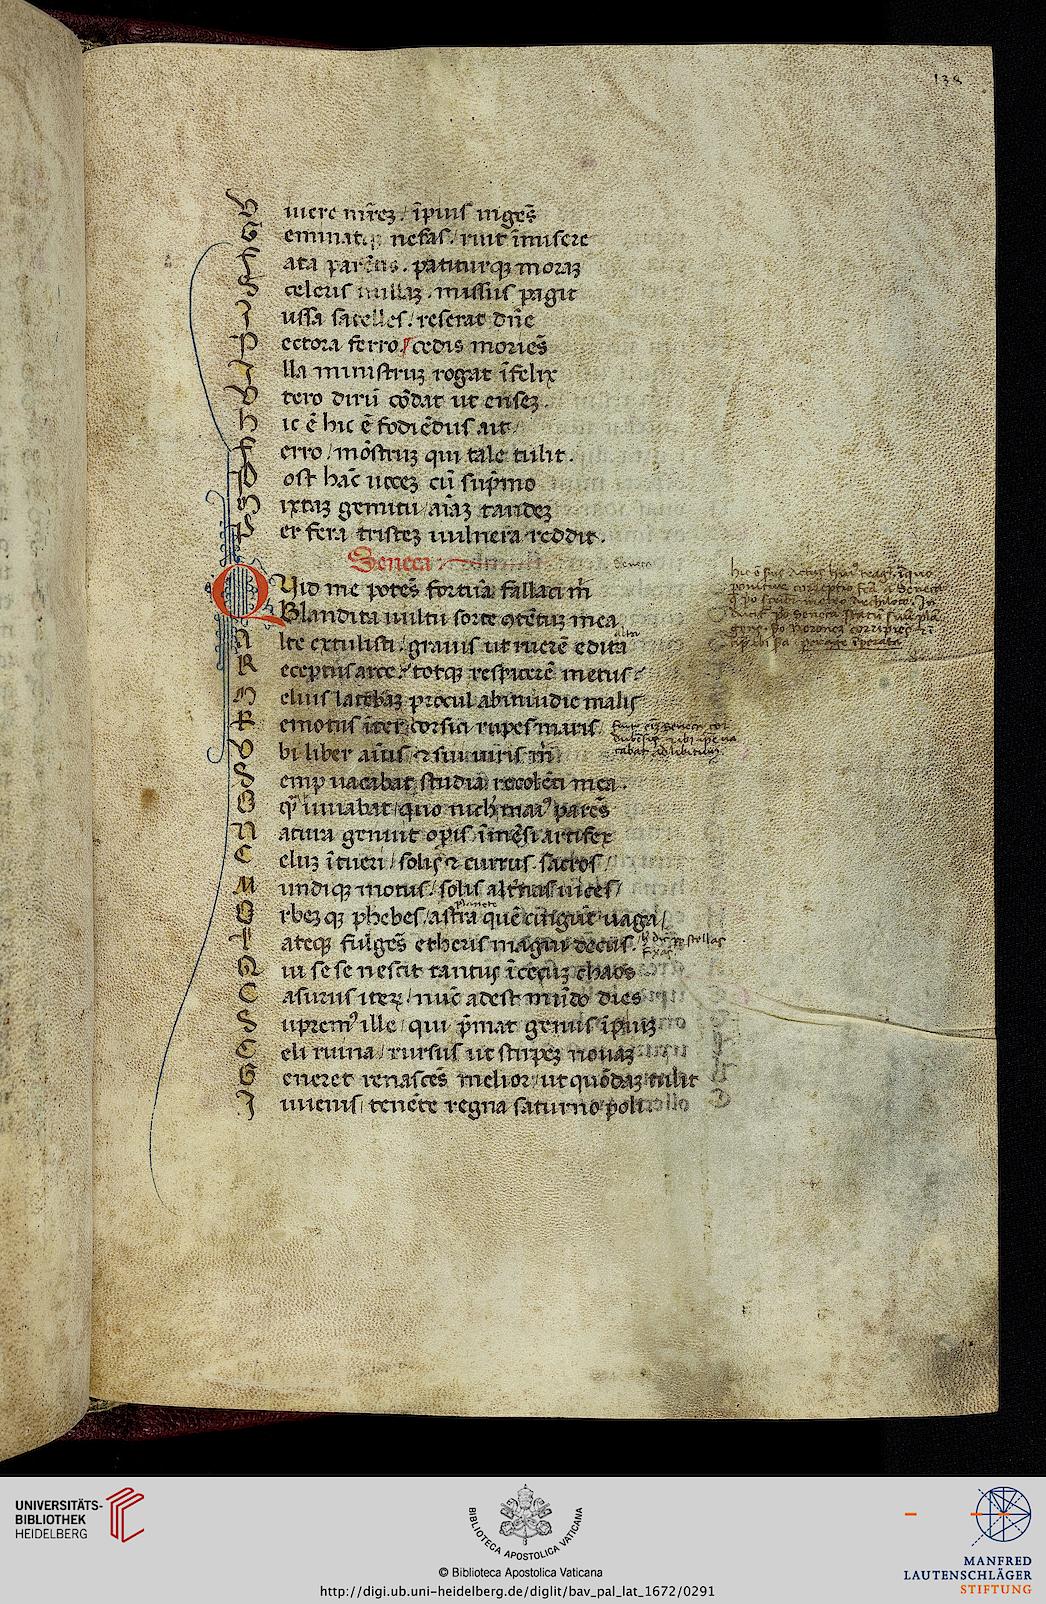 138
Uiuere mr̄ez / īpius ingēs
Geminatq̨ nefas / ruit īmisere
Fata parētis . patiturq̨ moraz
Sceleris nullaz . missus pagit
Iussa satelles / reserat dn̄e
Pectora ferro / cedis moriēs
Illa ministruz rogat īfelix
Utero dirū cōdat ut ensez
Hic ē hic ē fodiēdus ait
Ferro / mōstruz qui tale tulit .
Post hac̄ uocez cū sup̄mo
Mixtaz gemitu / aīaz tandez
Per fera tristez uulnera reddit .
Seneca
Seneca
QUid me potēs fortūa fallaci m̄
Blandita uultu sorte ɔtētuz mea
Alte extulisti / grauis ut ruerē edita
alta
Receptus arce / totq̨ respicerē metus
Melius latebaz procul ab inuidie malis
Remotus īter corsici rupes maris
Ubi liber aīus ⁊ sui iuris m̄
Semp uacabat studia recolēti mea .
O q̄ iuuabat / quo nich maiꝰ parēs
Natura genuit opis īmēsi artifex
Celuz ītueri / solis ⁊ currus sacros
Mundiq̨ motus / solis alt̄nas uices
planete
Orbez q̨ phebes / astra quē cīgūt uaga /
Lateq̨ fulgēs etheris magni decus .
Qui se senescit tantus ī cecuz chaos
Casurus iterz / nūc adest mūdo dies
Supremꝰ ille / qui p̄mat genus īpiuz
Celi ruina / rursus ut stirpez nouaz
Generet renascēs melior / ut quōdaz tulit
Iuuenis / tenēte regna saturno poli
UNIVERSITÄTS-
BIBLIOTHEK
HEIDELBERG
BIBLIOTECA APOSTOLICA VATICANA
© Biblioteca Apostolica Vaticana
http://digi.ub.uni-heidelberg.de/diglit/bav_pal_lat_1672/0291
MANFRED
LAUTENSCHLÄGER
STIFTUNG